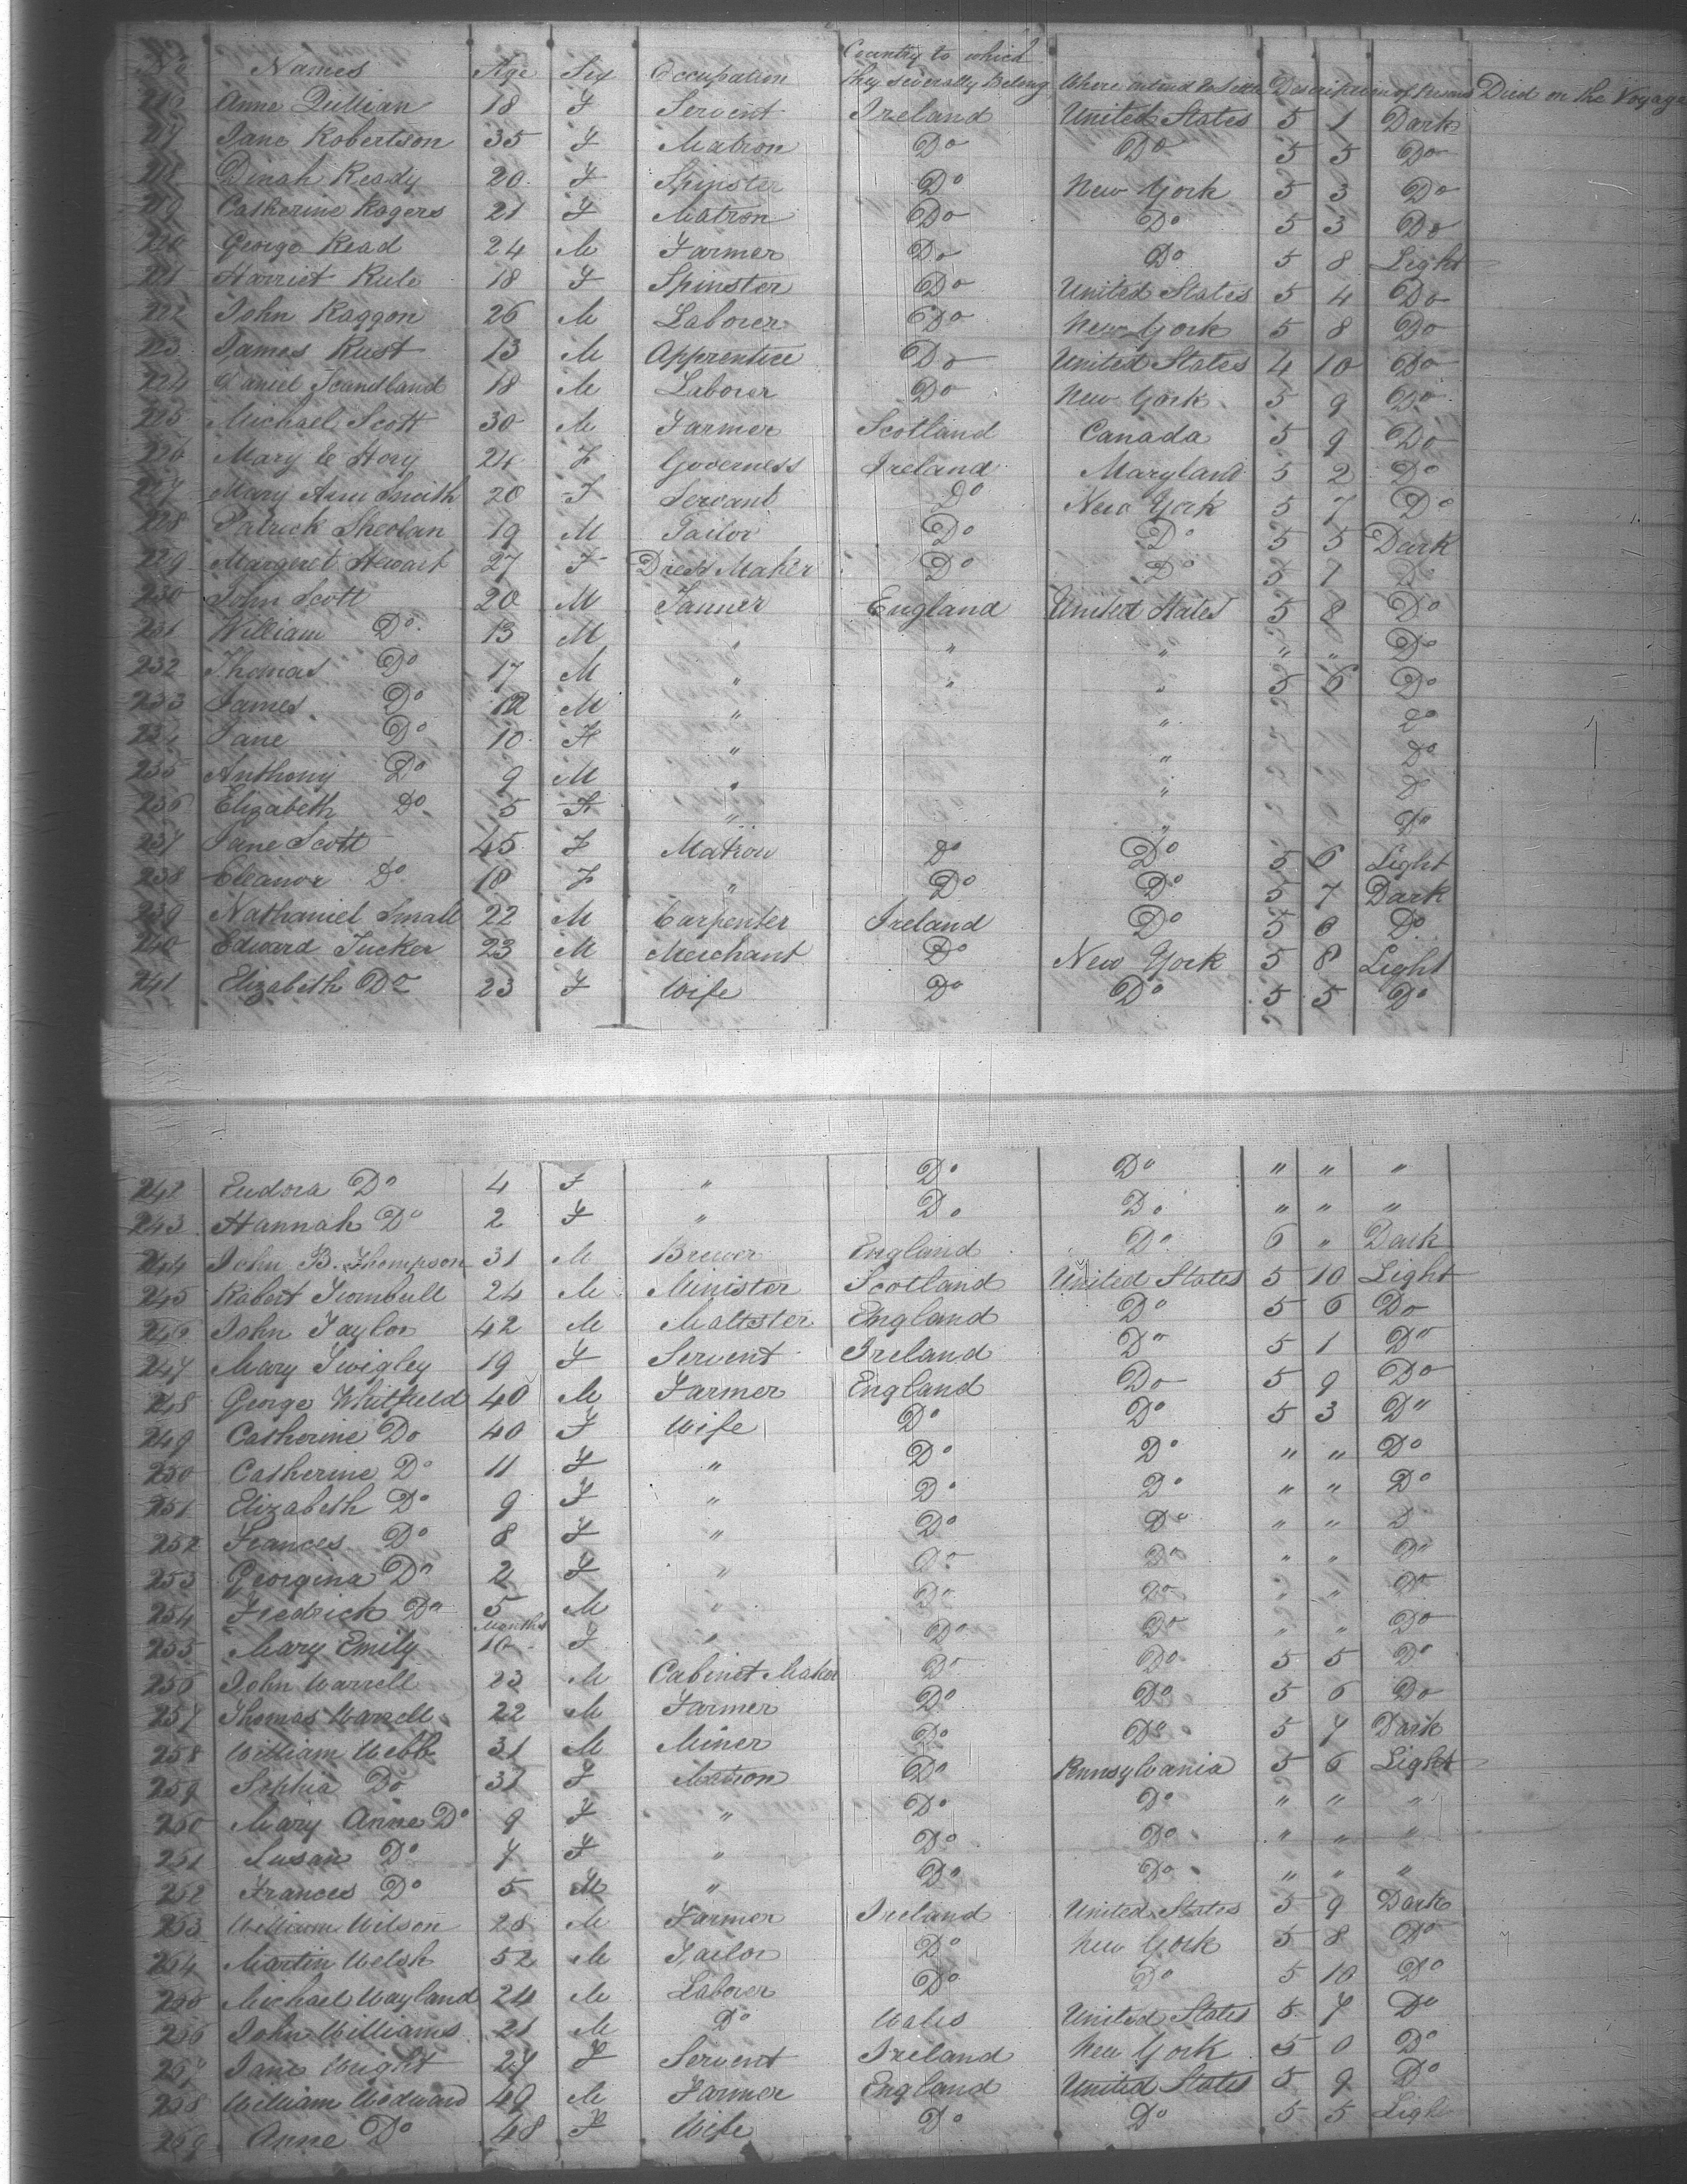 No Names Age Sex Occupation Country to which they severally Belong Where intend to settle Description of Persons Died on the Voyage
216 Anne Quillian 18 F Servent Ireland United States 5 1 Dark
217 Jane Robertson 35 F Matron Do Do 5 5 Do
218 Dinah Ready 20 F Spinster Do New York 5 3 Do
219 Catherine Rogers 21 F Matron Do Do 5 3 Do
220 George Read 24 M Farmer Do Do 5 8 Light
221 Harriet Rule 18 F Spinster Do United States 5 4 Do
222 John Raggon 26 M Laborer Do New York 5 8 Do
223 James Rust 13 M Apprentice Do United States 4 10 Do
224 Daniel Scandland 18 M Laborer Do New York 5 9 Do
225 Michael Scott 30 M Farmer Scotland Canada 5 9 Do
226 Mary C Story 24 F Governess Ireland Maryland 5 2 Do
227 Mary Ann Smith 20 F Servant Do New York 5 7 Do
228 Patrick Sheolan 19 M Tailor Do Do 5 5 Dark
229 Margeret Stewart 27 F Dress Maker Do Do 5 7 Do
230 John Scott 20 M Tanner England United States 5 8 Do
231 William Do 13 M " " " " " Do
232 Thomas Do 17 M " " " 5 6 Do
233 James Do 12 M " " Do
234 Jane Do 10 F " " Do
235 Anthony Do 9 M " " Do
236 Elizabeth Do 5 F " " Do
237 Jane Scott 45 F Matron Do Do 5 6 Light
238 Eleanor Do 18 F " Do Do 5 7 Dark
239 Nathaniel Small 22 M Carpenter Ireland Do 5 6 Do
240 Edward Tucker 23 M Merchant Do New York 5 8 Light
241 Elizabeth Do 23 F Wife Do Do 5 5 Do
242 Eudora Do 4 F " Do Do " " "
243 Hannah Do 2 F " Do Do " " "
244 John B. Thompson 31 M Brewer England Do 6 " Dark
245 Robert Turnbull 24 M Minister Scotland United States 5 10 Light
246 John Taylor 42 M Maltster England Do 5 6 Do
247 Mary Twigley 19 F Servent Ireland Do 5 1 Do
248 George Whitfield 40 M Farmer England Do 5 9 Do
249 Catherine Do 40 F Wife Do Do 5 3 Do
250 Catherine Do 11 F " Do Do " " Do
251 Elizabeth Do 9 F " Do Do " " Do
252 Frances Do 8 F " Do Do " " Do
253 Georgina Do 2 F " Do Do " " Do
254 Fredrick Do 5 M " Do Do " " Do
255 Mary Emily Months 10 F " Do Do " " Do
256 John Warrell 23 M Cabinet Maker Do Do 5 5 Do
257 Thomas Warrell 22 M Farmer Do Do 5 6 Do
258 William Webb 31 M Miner Do Do 5 7 Dark
259 Sophia Do 31 F Matron Do Pennsylvania 5 6 Light
260 Mary Anne Do 9 F " Do Do " " "
261 Susan Do 7 F " Do Do " " "
262 Frances Do 5 M " Do Do " " "
263 William Wilson 28 M Farmer Ireland United States 5 9 Dark
264 Martin Welsh 52 M Tailor Do New York 5 8 Do
265 Michael Wayland 24 M Laborer Do Do 5 10 Do
266 John Williams 21 M Do Wales United States 5 7 Do
267 Jane Wright 27 F Servent Ireland New York 5 0 Do
268 William Wedward 49 M Farmer England United States 5 9 Do
269 Anne Do 48 F Wife Do Do 5 5 Ligh